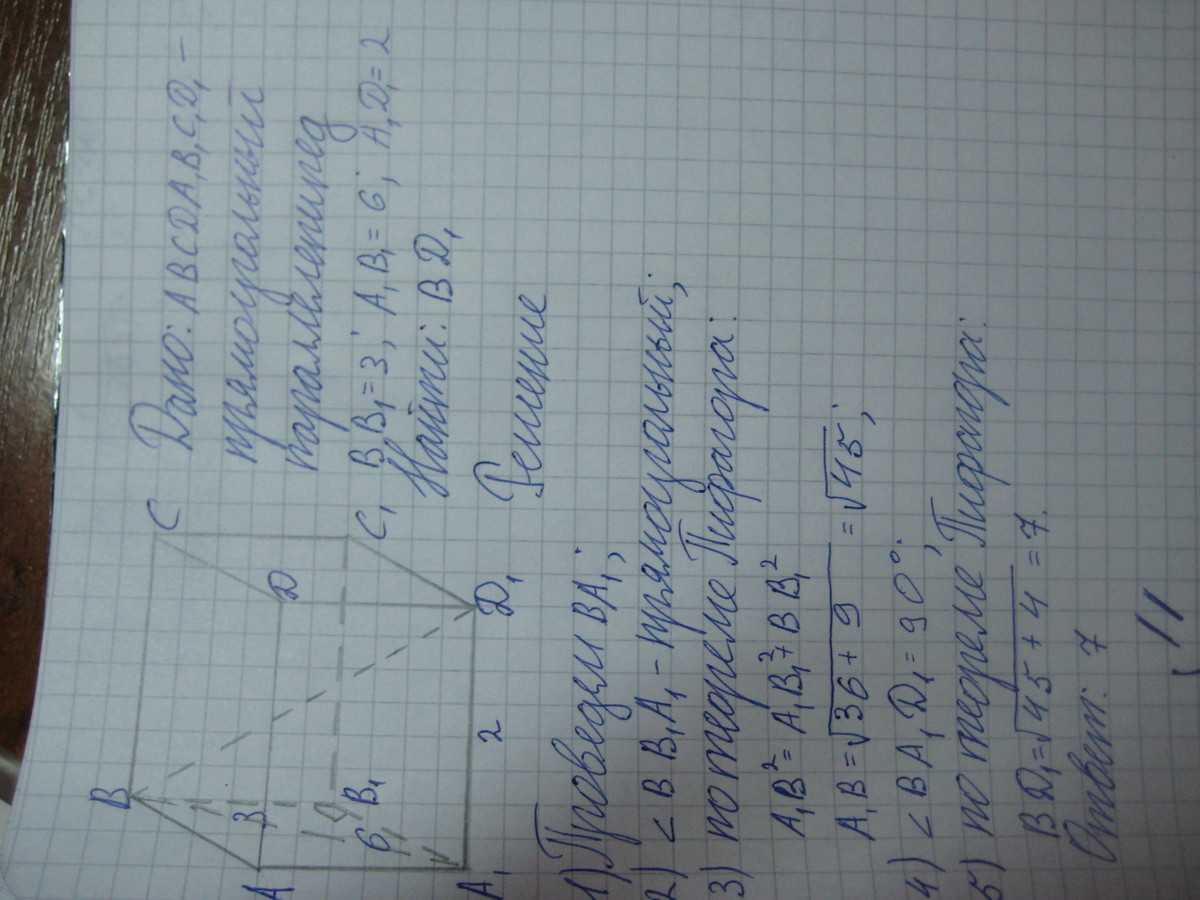 Дано: ABCDA₁B₁C₁D₁ –
прямоугольный
параллелепипед
BB₁ = 3; A₁B₁ = 6; A₁D₁ = 2
Найти: BD₁
Решение
B
C
A
D
3
6
B₁
C₁
A₁
2
D₁
1) Проведём BA₁;
2) < BB₁A₁ – прямоугольный;
3) по теореме Пифагора:
A₁B² = A₁B₁² + BB₁²
A₁B = √36 + 9 = √45;
4) < BA₁D₁ = 90°;
5) по теореме Пифагора:
BD₁ = √45 + 4 = 7.
Ответ: 7